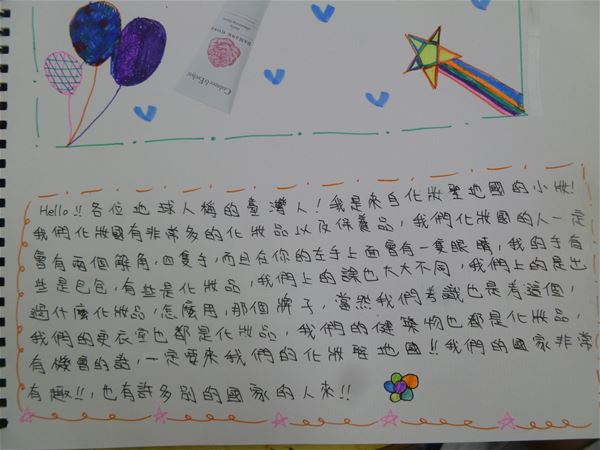 Crabtree & Evelyn
DAMASK ROSE
Hello!! 各位地球人稱的臺灣人! 我是來自化妝聖地國的小妝!
我們化妝國有非常多的化妝品以及保養品, 我們化妝國的人一定
會有兩個觸角, 四隻手, 而且在你的左手上面會有一隻眼睛, 我的手有
些是包包, 有些是化妝品, 我們上的課也大大不同, 我們上的是出
過什麼化妝品, 怎麼用, 那個牌子, 當然我們考試也是考這個,
我們的更衣室也都是化妝品, 我們的建築物也都是化妝品,
有機會的話, 一定要來我們的化妝聖地國!! 我們的國家非常
有趣!!, 也有許多別的國家的人來!!